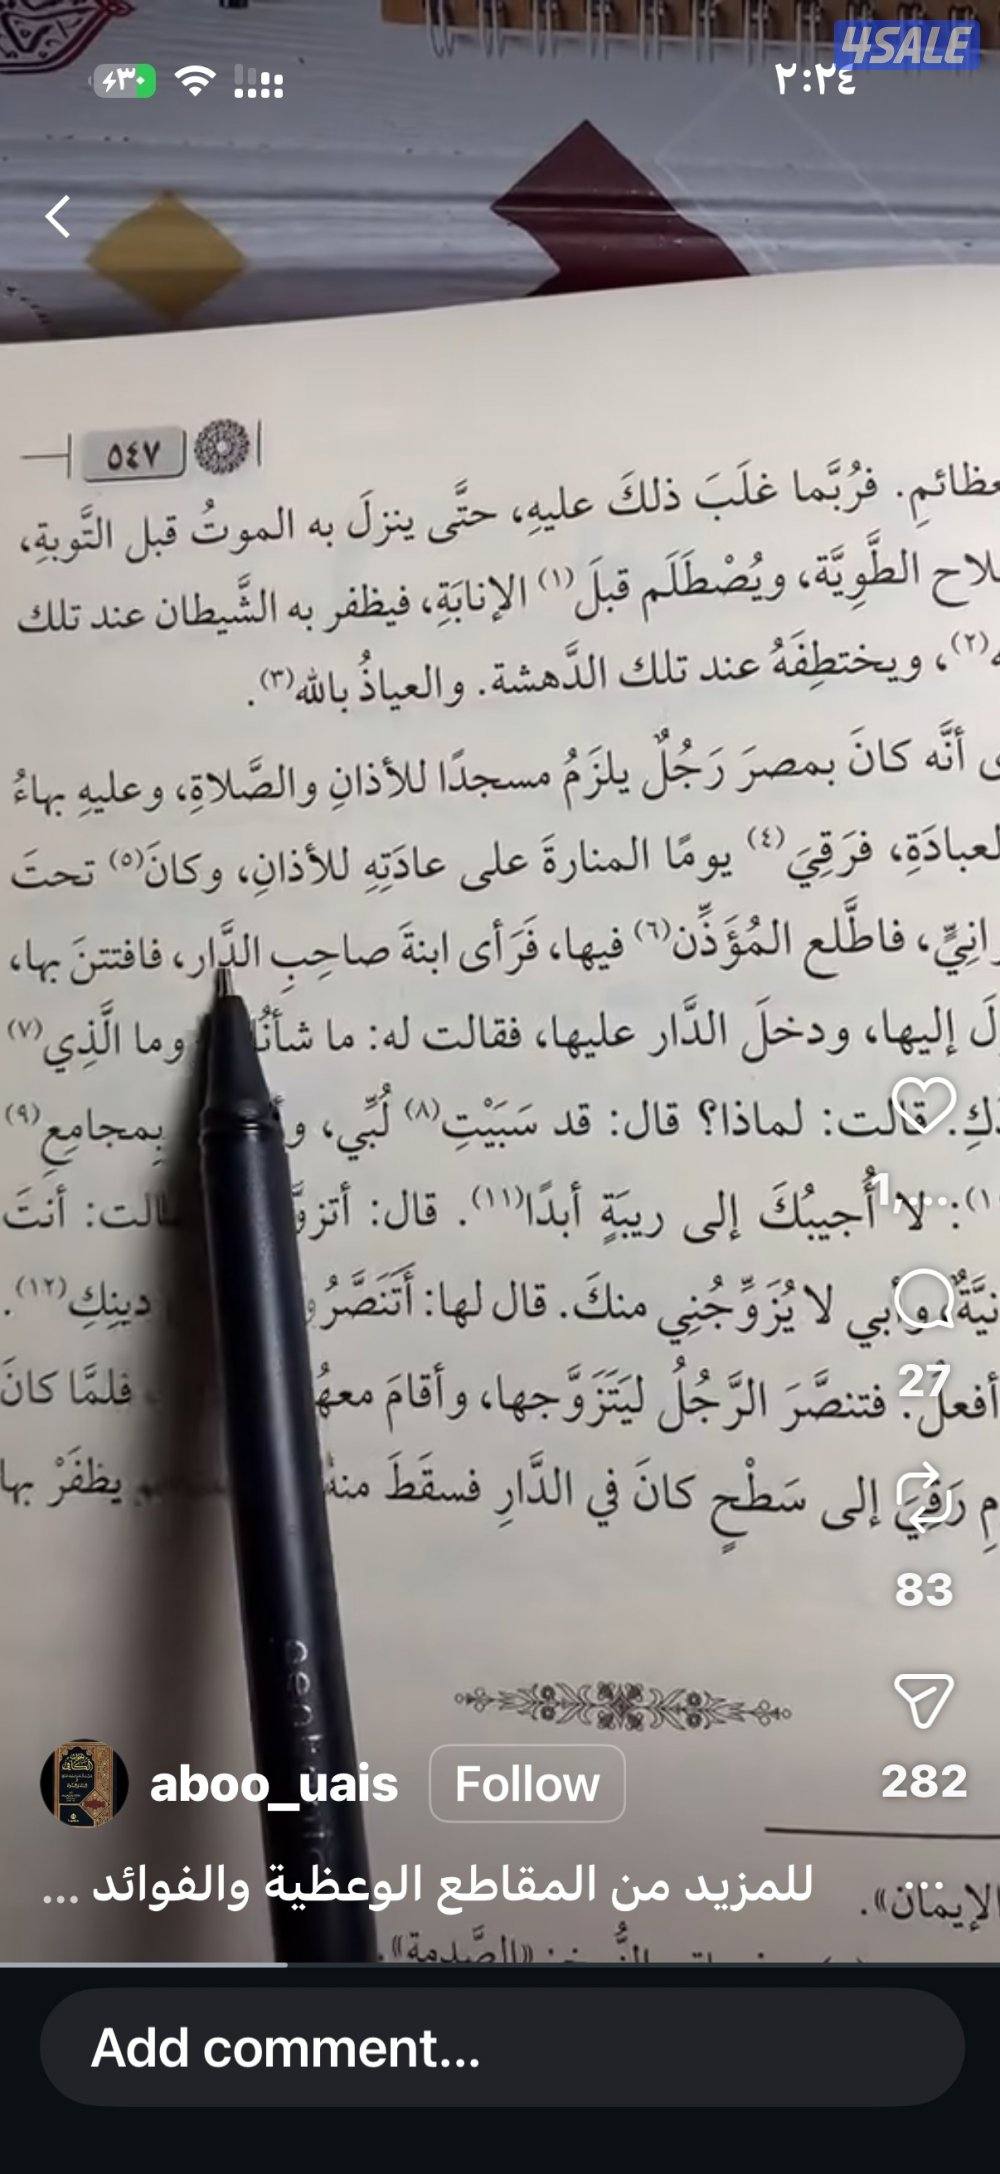 4SALE
٢:٢٤
٣٠
٥٤٧
فرُبَّما غلَبَ ذلكَ عليهِ، حتَّى ينزلَ به الموتُ قبل التَّوبةِ،
الطَّوِيَّة، ويُصْطَلَم قبلَ(١) الإنابَةِ، فيظفر به الشَّيطان عند تلك
(٢)، ويختطِفَهُ عند تلك الدَّهشة. والعياذُ بالله(٣).
أنَّه كانَ بمصرَ رَجُلٌ يلزَمُ مسجدًا للأذانِ والصَّلاةِ، وعليهِ بهاءُ
فرَقِيَ(٤) يومًا المنارةَ على عادَتِهِ للأذانِ، وكانَ(٥) تحتَ
فاطَّلع المُؤَذِّن(٦) فيها، فَرَأى ابنةَ صاحِبِ الدَّار، فافتتنَ بها،
إليها، ودخلَ الدَّار عليها، فقالت له: ما وما الَّذِي(٧)
قالت: لماذا؟ قال: قد سَبَيْتِ(٨) لُبِّي، بِمجامِعِ(٩)
لا أُجيبُكَ إلى ريبَةٍ أبدًا(١١). قال: أنتَ
وأبي لا يُزَوِّجُنِي منكَ. قال لها: أَتَنَصَّرُ دينِكِ(١٢).
أفعلْ. فتنصَّرَ الرَّجُلُ ليَتَزَوَّجها، وأقامَ فلمَّا كانَ
رَقِيَ إلى سَطْحٍ كانَ في الدَّارِ فسقَطَ منهُ يظفَرْ بها
27
83
282
aboo_uais
Follow
للمزيد من المقاطع الوعظية والفوائد ...
الإيمان».
«الصَّدمة».
Add comment...